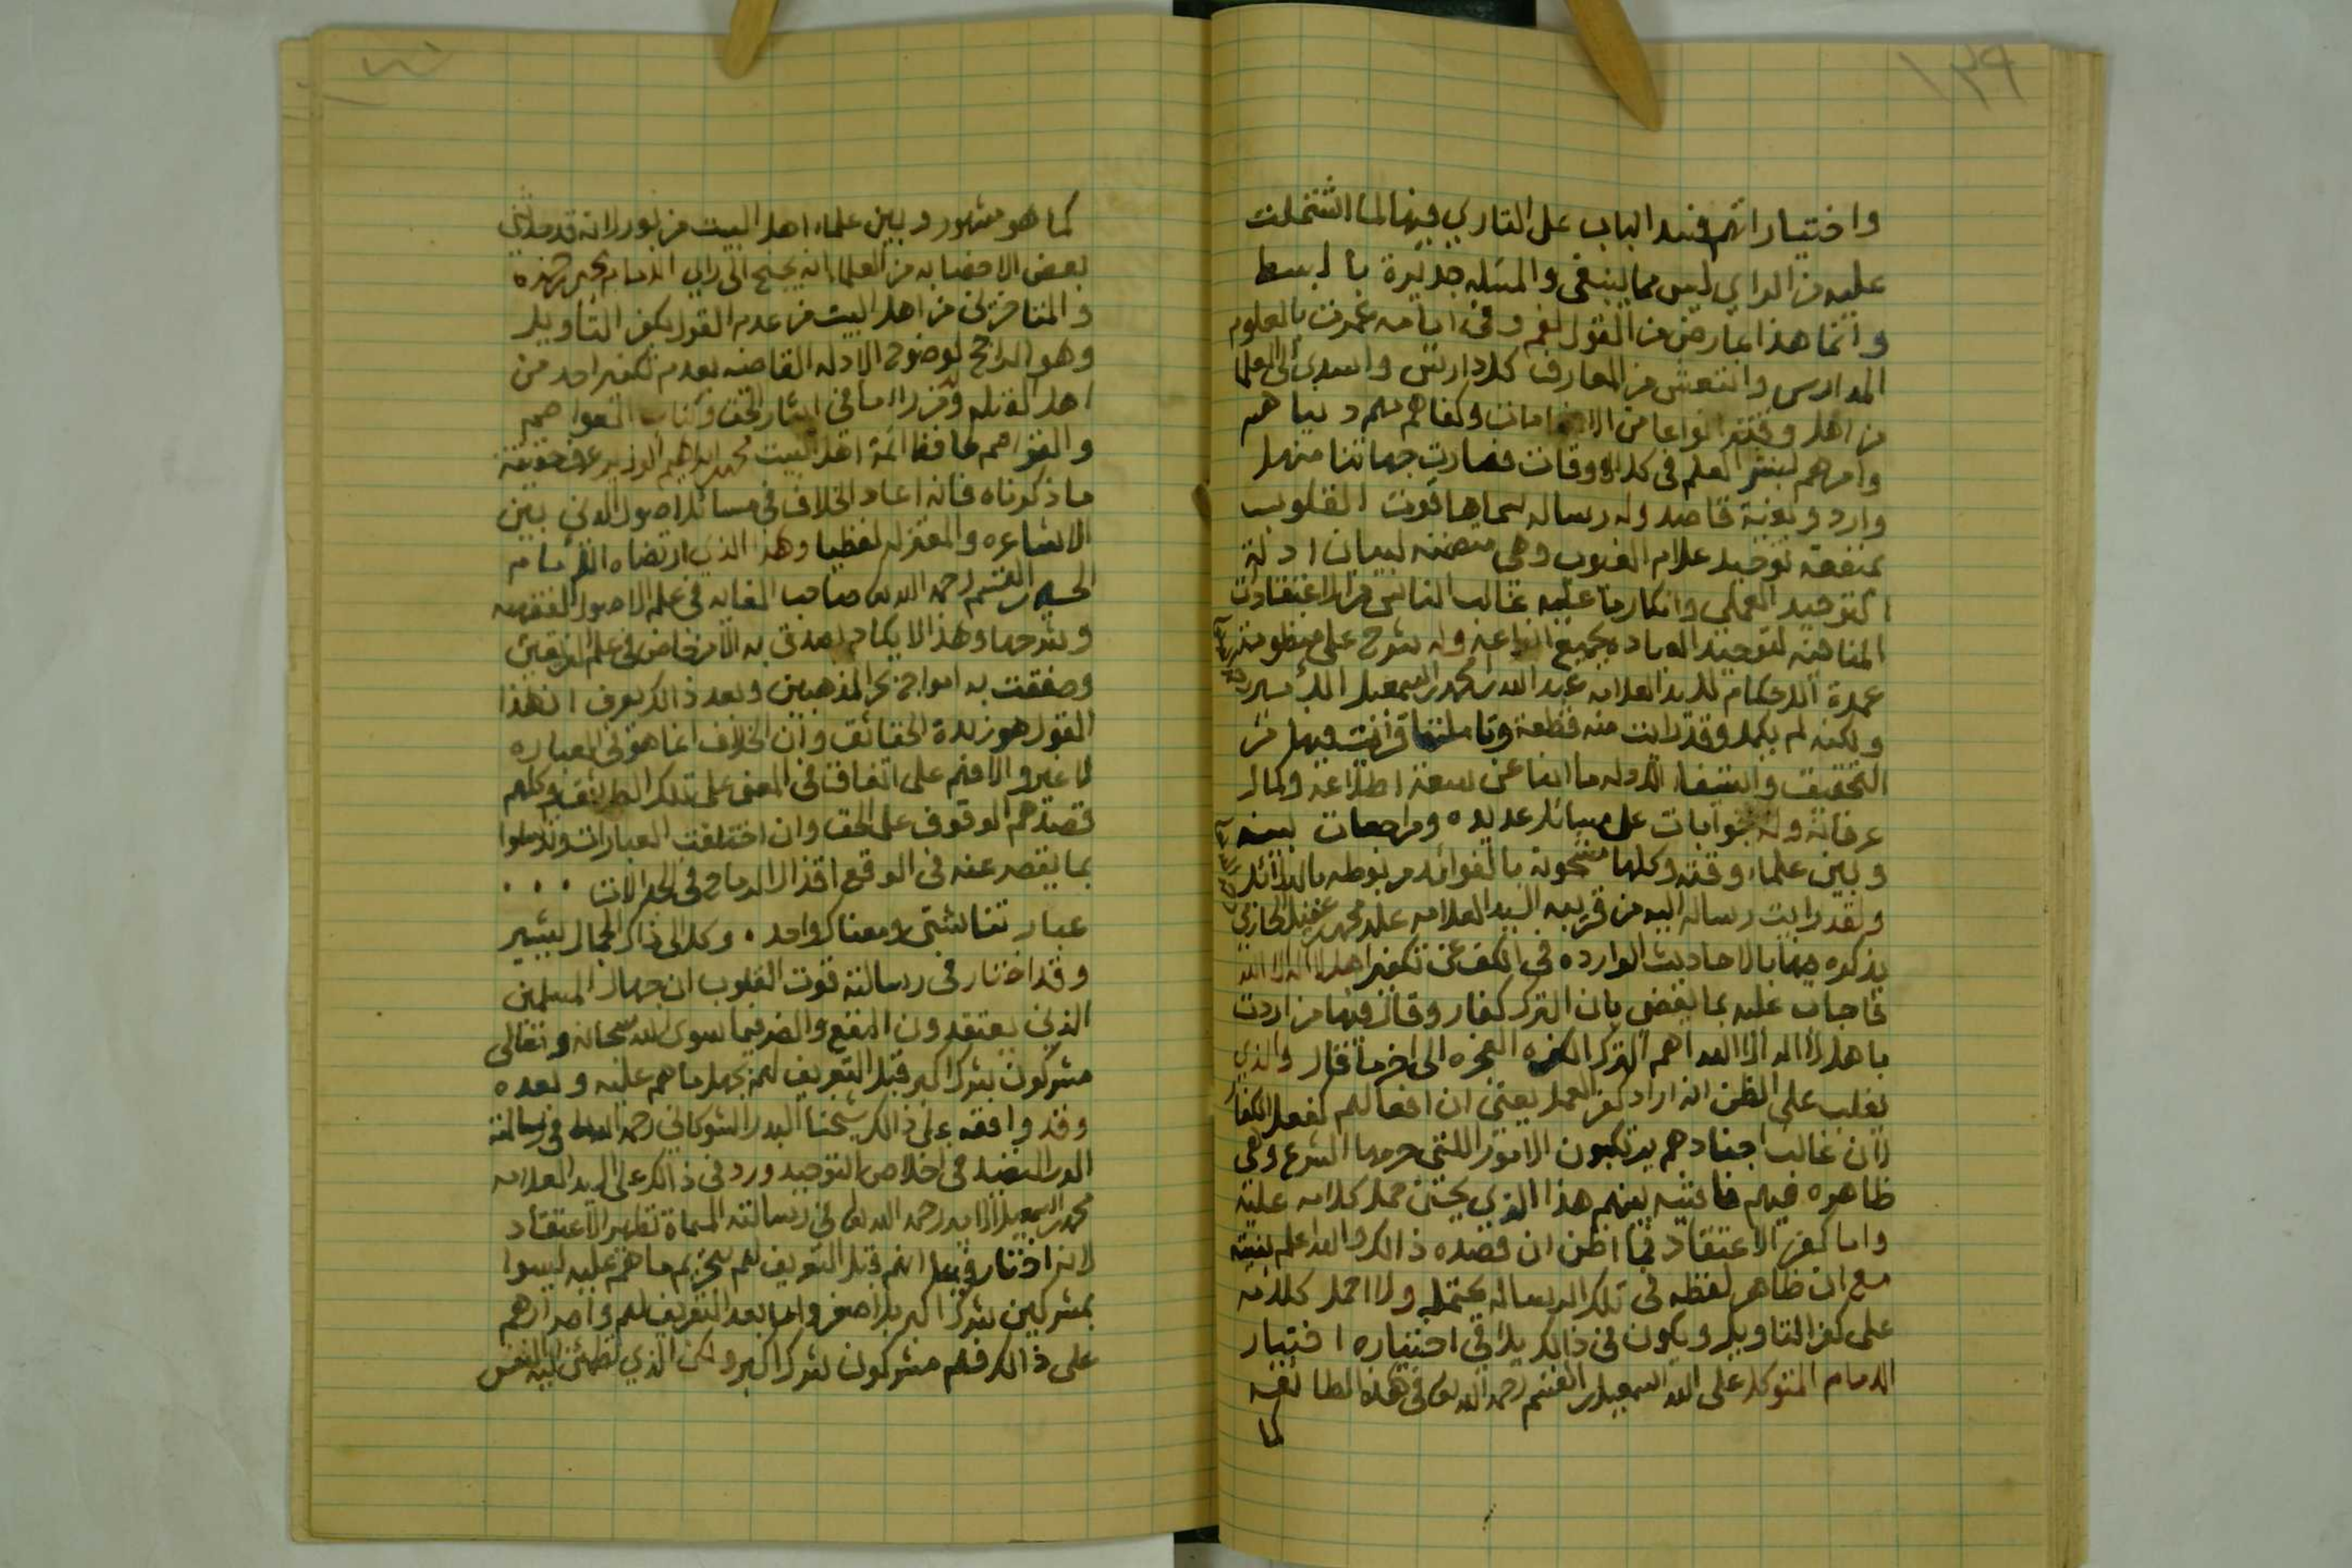 ١٣٩
واختياراتهم فسد الباب على القاري فيها لما اشتملت
عليه من الراي ليس مما ينبغي والمسئله جديرة بالبسط
وانما هذا عارض من القول نعم وفي ايامه عمرت بالعلوم
المدارس وانتعش من المعارف كل دارس واسدى الى العلما
من اهل وقته انواعا من الانعامات وكفاهم هم دنياهم
وامرهم بنشر العلم في كل الاوقات فصارت جهاتنا منهل
وارد وبغية قاصد وله رساله سماها قوت القلوب
بمنفعة توحيد علام الغيوب وهي متضمنه لبيان ادلة
التوحيد العملي وانكار ما عليه غالب الناس من الاعتقادات
المنافيه لتوحيد العباده بجميع انواعه وله شرح على منظومة
عمدة الاحكام للسيد العلامه عبد الله بن محمد بن اسمعيل الامير
ولكنه لم يكمل وقد رايت منه قطعة وتاملتها فرايت فيها من
التحقيق واستيفا الادله ما انبا عن سعة اطلاعه وكمال
عرفانه وله جوابات على مسائل عديده ومراجعات بينه
وبين علماء وقته وكلها مشحونة بالفوائد مربوطه بالدلائل
ولقد رايت رساله اليه من قريبه السيد العلامه علي بن محمد بن عقيل الحازمي
يذكره فيها بالاحاديث الوارده في الكف عن تكفير اهل لا اله الا الله
فاجاب عليه بما يقضي بان الترك كفار وقال فيها من اردت
باهل لا اله الا الله اهم الترك الكفره الفجره الى اخر ما قال والذي
يغلب على الظن انه اراد كفر العمل يعني ان افعالهم كفعل الكفار
لان غالب اجنادهم يرتكبون الامور اللتي حرمها الشرع وهي
ظاهره فيهم فاشيه بينهم هذا الذي يحسن حمل كلامه عليه
واما كفر الاعتقاد فما اظن ان قصده ذالك والله اعلم بنيته
مع ان ظاهر لفظه في تلك الرساله يحتمله ولا احمل كلامه
على كفر التاويل ويكون في ذالك يلاقي اختياره اختيار
الامام المتوكل على الله اسمعيل بن القسم رحمه الله في هذه الطائفه
كما
كما هو مشهور وبين علماء اهل البيت مزبور لانه قد
بعض الاخصا به من العلماء انه يجنح الى راي الامام يحيى بن حمزه
والمتاخرين من اهل البيت من عدم القول بكفر التاويل
وهو الراجح لوضوح الادله القاضيه بعدم تكفير احد من
اهل القبله ومن راى ما في ايثار الحق وكتاب العواصم
والقواصم لحافظ ائمة اهل البيت محمد بن ابراهيم الوزير عرف حقيقة
ما ذكرناه فانه اعاد الخلاف في مسائل اصول الدين بين
الاشاعره والمعتزله لفظيا وهذا الذي ارتضاه الامام
الحسين بن القسم رحمه الله صاحب الغايه في علم الاصول الفقهيه
وشرحها وهذا لا يكاد يصدق به الا من خاض في علم الفريقين
وصفقت به امواج بحر المذهبين وبعد ذالك يعرف ان هذا
القول هو زبدة الحقائق وان الخلاف انما هو في العباره
لا غير والا فهم على اتفاق في المعنى على تلك الطرائق وكلهم
قصدهم الوقوف على الحق وان اختلفت العبارات
بما يقصر عنه في الوقع اقذال الرماح في الات . . .
عباراتنا شتى ومعناك واحد . وكل الى ذاك الجمال يشير
وقد اختار في رسالته قوت القلوب ان جهال المسلمين
الذين يعتقدون النفع والضر فيما سوى الله سبحانه وتعالى
مشركون شرك اكبر قبل التعريف لهم بجهل ما هم عليه وبعده
وقد وافقه على ذالك شيخنا البدر الشوكاني رحمه الله في رسالته
الدر النضيد في اخلاص التوحيد ورد في ذالك على السيد العلامه
محمد بن اسمعيل الامير رحمه الله في رسالته المسماة تطهير الاعتقاد
لانه اختار فيها انهم قبل التعريف لهم بتحريم ما هم عليه ليسوا
بمشركين شرك اكبر بل اصغر واما بعد التعريف لهم واصرارهم
على ذالك فهم مشركون شرك اكبر ولكن الذي تطمئن اليه النفس